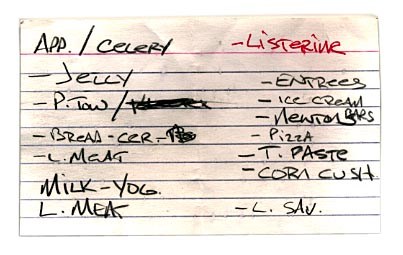 APP. / CELERY
- JELLY
- P. TOW /
- BREAD - CER -
- L. MEAT
MILK - YOG.
L. MEAT
- LISTERINE
- ENTREES
- ICE CREAM
- NEWTON BARS
- PIZZA
- T. PASTE
- CORN CUSH
- L. SAV.